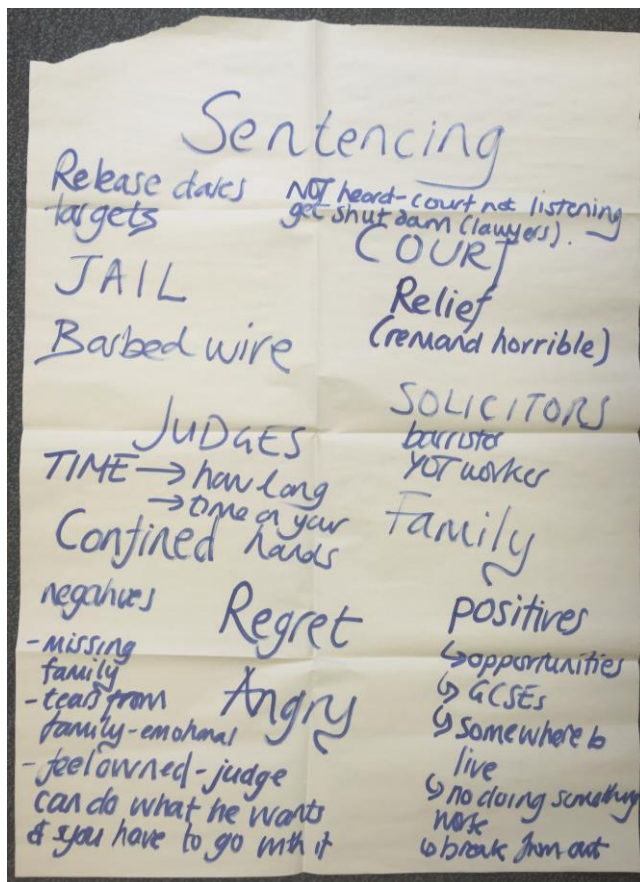 Sentencing
Release dates
targets
NOT heard - court not listening
get shut down (lawyers).
COURT
JAIL
Relief
(remand horrible)
Barbed wire
SOLICITORS
barrister
YOT worker
JUDGES
TIME → how long
→ time on your
hands
Family
Confined
negatives
- missing
family
- tears from
family - emotional
- feel owned - judge
can do what he wants
& you have to go with it
Regret
Angry
positives
↳ opportunities
↳ GCSEs
↳ somewhere to
live
↳ no doing something
worse
↳ break from out